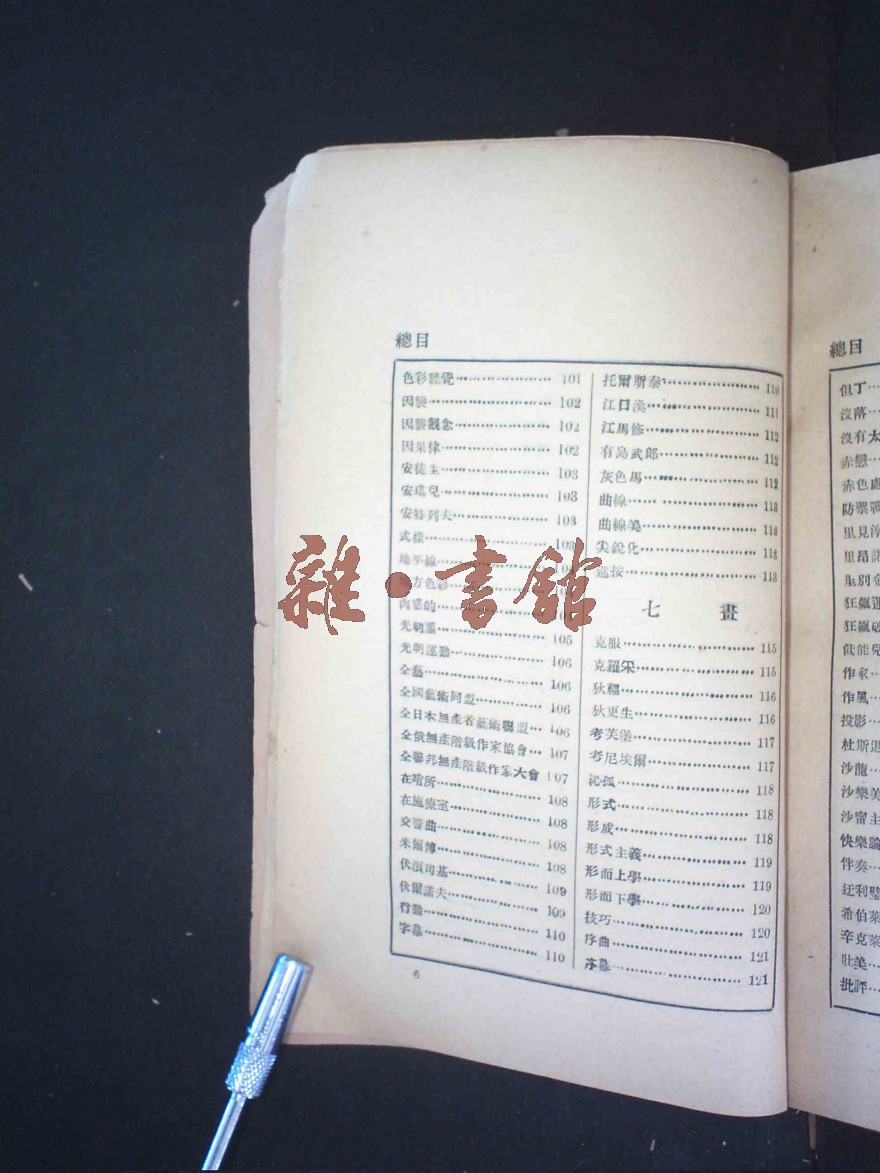 總目
色彩聽覺 101
因襲 102
因襲觀念 102
因果律 102
安徒生 103
安琪兒 103
安特列夫 103
式樣 103
地平線
地方色彩
肉感的
光朝 105
光明運動 106
全藝 106
全國藝術同盟 106
全日本無產者藝術聯盟 106
全俄無產階級作家協會 107
全聯邦無產階級作家大會 107
在哨所 108
在施療室 108
交響曲 108
米爾博 108
伏浪司基 109
伏爾諾夫 109
行動 110
字幕 110
托爾斯泰 110
江口渙 111
江馬修 112
有島武郎 112
灰色馬 112
曲線 113
曲線美 113
尖銳化 113
巡按 113
七 畫
克服 115
克羅采 115
狄福 116
狄更生 116
考芙堡 117
考尼埃爾 117
沁孤 118
形式 118
形成 118
形式主義 119
形而上學 119
形而下學 120
技巧 120
序曲 121
序幕 121
6
雜·書館
總目
但丁
沒落
沒有太
赤戀
赤色
防禦戰
里見
里昂
狂飆
狂飆
低能兒
作家
作風
投影
杜斯退
沙龍
沙樂美
沙甯主
快樂論
伴奏
希伯萊
辛克萊
壯美
批評